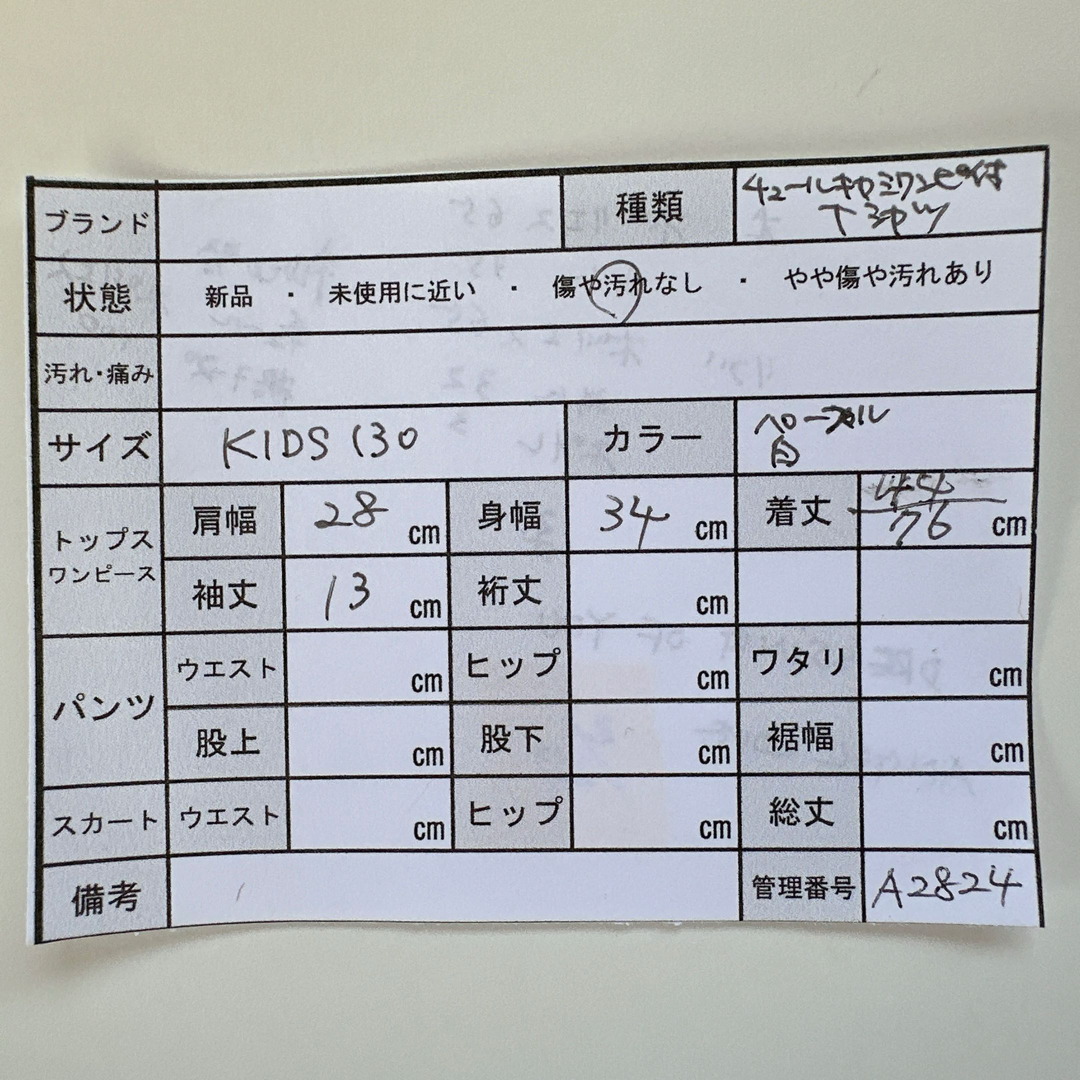 ブランド 種類 チュールキャミワンピ付
Tシャツ
状態 新品 ・ 未使用に近い ・ 傷や汚れなし ・ やや傷や汚れあり
汚れ・痛み
サイズ KIDS 130 カラー パープル
白
トップス
ワンピース
肩幅 28 cm 身幅 34 cm 着丈 44
76 cm
袖丈 13 cm 裄丈 cm
パンツ
ウエスト cm ヒップ cm ワタリ cm
股上 cm 股下 cm 裾幅 cm
スカート ウエスト cm ヒップ cm 総丈 cm
備考 管理番号 A2824